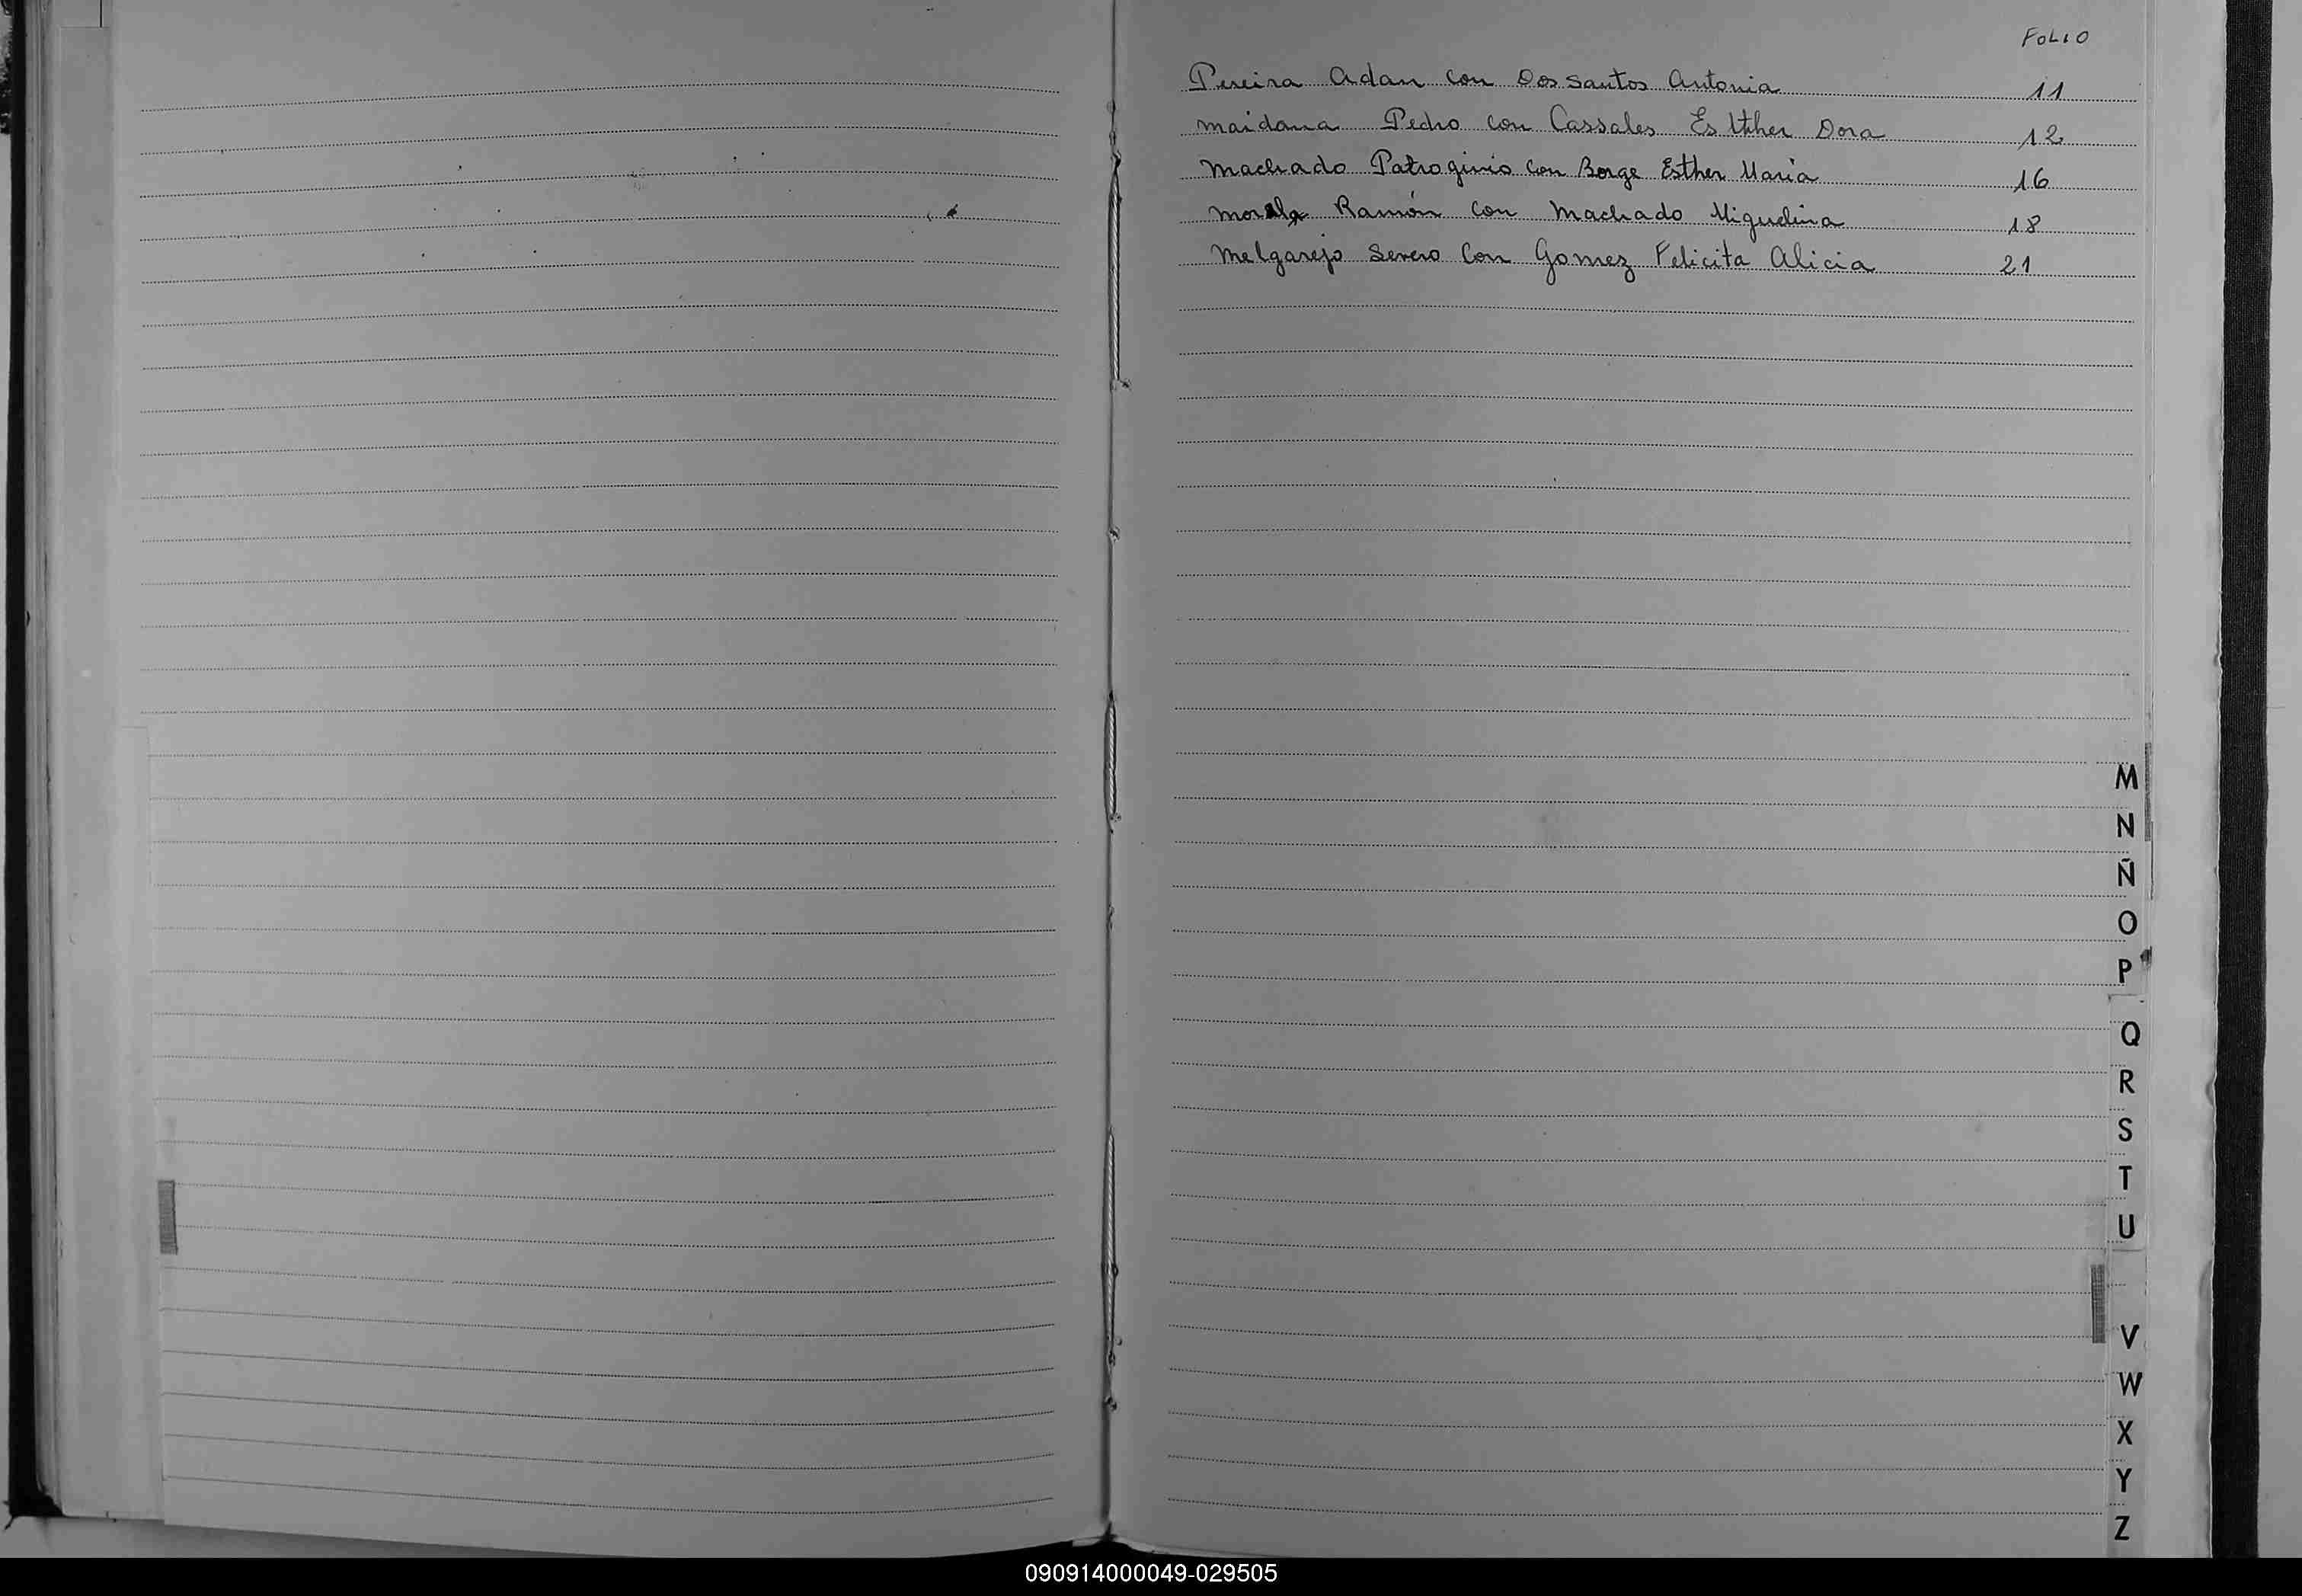 FOLIO
Pereira Adan con Dos Santos Antonia 11
Maidana Pedro con Cassales Esther Dora 12
Machado Patroginio con Borge Esther Maria 16
Ramón con Machado Miguelina 18
Melgarejo Severo con Gomez Felicita Alicia 21
M
N
Ñ
O
P
Q
R
S
T
U
V
W
X
Y
Z
090914000049-029505